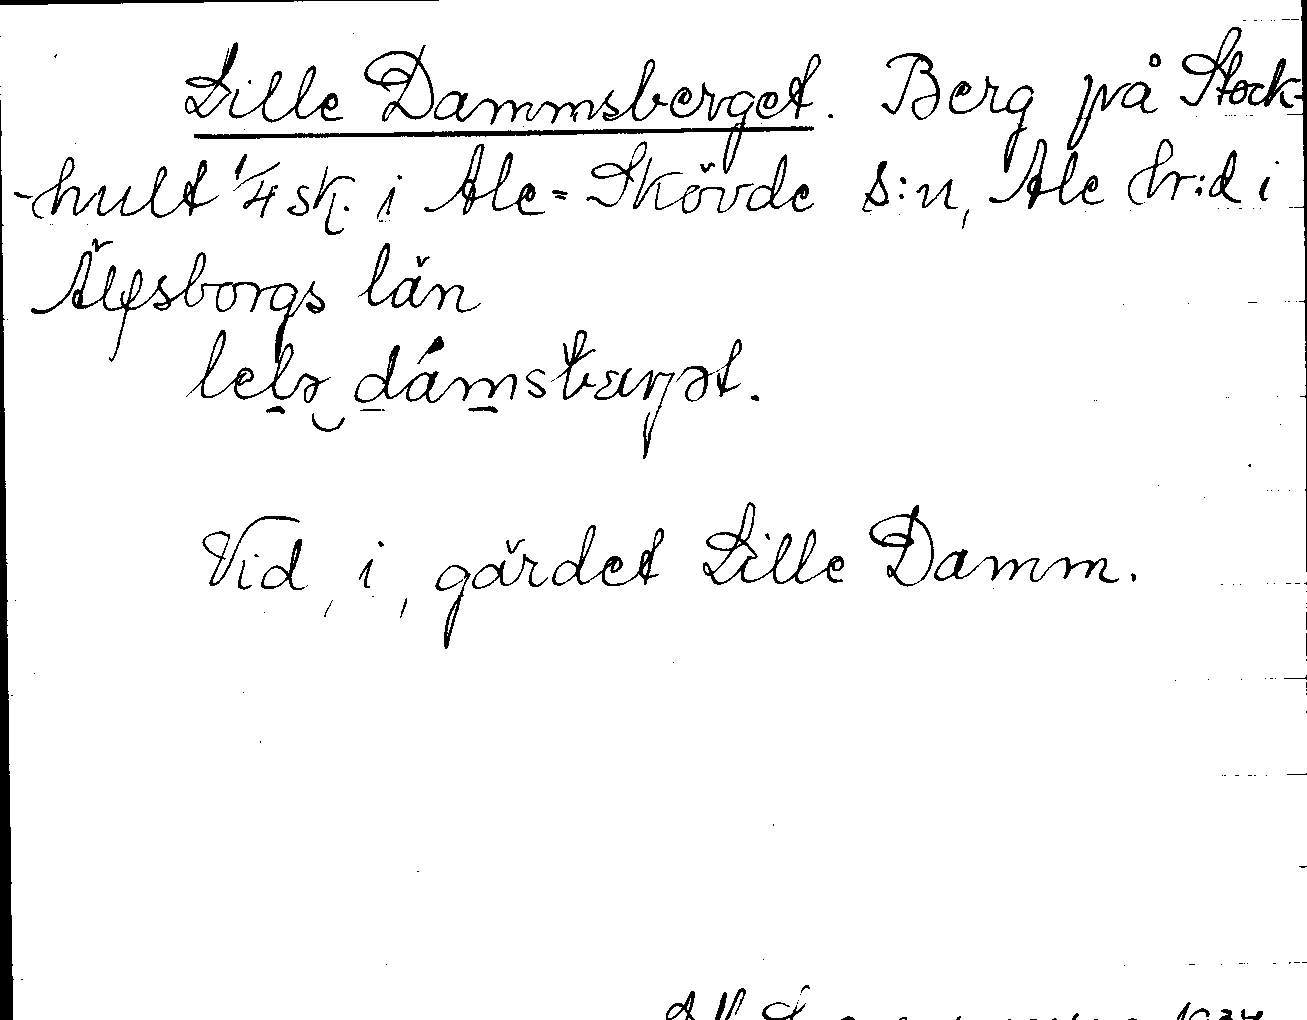 Lille Dammsberget. Berg på Stock-
-hult 1/4 sk. i Ale-Skövde s:n, Ale hr:d i
Älfsborgs län
lelə dámsbærjət.
Vid, i, gärdet Lille Damm.